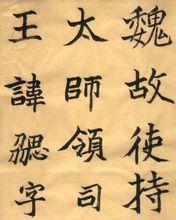 魏故使持
太師領司
王諱勰字